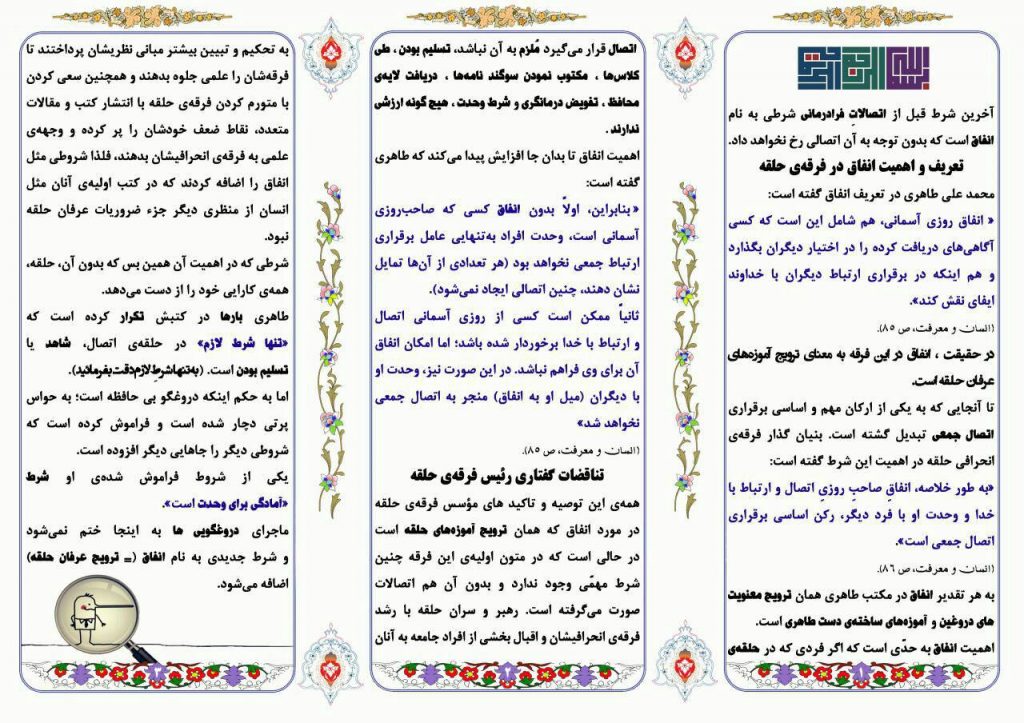 بسم الله الرحمن الرحیم
آخرین شرط قبل از اتصالاتِ فرادرمانی شرطی به نام
انفاق است که بدون توجه به آن اتصالی رخ نخواهد داد.
تعریف و اهمیت انفاق در فرقه‌ی حلقه
محمد علی طاهری در تعریف انفاق گفته است:
« انفاق روزی آسمانی، هم شامل این است که کسی
آگاهی‌های دریافت کرده را در اختیار دیگران بگذارد
و هم اینکه در برقراری ارتباط دیگران با خداوند
ایفای نقش کند».
(انسان و معرفت، ص ۸۵).
در حقیقت ، انفاق در این فرقه به معنای ترویج آموزه‌های
عرفان حلقه است.
تا آنجایی که به یکی از ارکان مهم و اساسی برقراری
اتصال جمعی تبدیل گشته است. بنیان گذار فرقه‌ی
انحرافی حلقه در اهمیت این شرط گفته است:
«به طور خلاصه، انفاقِ صاحبِ روزیِ اتصال و ارتباط با
خدا و وحدت او با فرد دیگر، رکن اساسی برقراری
اتصال جمعی است».
(انسان و معرفت، ص ۸۶).
به هر تقدیر انفاق در مکتب طاهری همان ترویج معنویت
های دروغین و آموزه‌های ساخته‌ی دست طاهری است.
اهمیت انفاق به حدّی است که اگر فردی که در حلقه‌ی
اتصال قرار می‌گیرد مُلزم به آن نباشد، تسلیم بودن ، طی
کلاس‌ها ، مکتوب نمودن سوگند نامه‌ها ، دریافت لایه‌ی
محافظ ، تفویض درمانگری و شرط وحدت ، هیچ گونه ارزشی
ندارند .
اهمیت انفاق تا بدان جا افزایش پیدا می‌کند که طاهری
گفته است:
«بنابراین، اولاً بدون انفاق کسی که صاحب‌روزی
آسمانی است، وحدت افراد به‌تنهایی عامل برقراری
ارتباط جمعی نخواهد بود (هر تعدادی از آن‌ها تمایل
نشان دهند، چنین اتصالی ایجاد نمی‌شود).
ثانیاً ممکن است کسی از روزی آسمانی اتصال
و ارتباط با خدا برخوردار شده باشد؛ اما امکان انفاق
آن برای وی فراهم نباشد. در این صورت نیز، وحدت او
با دیگران (میل او به انفاق) منجر به اتصال جمعی
نخواهد شد»
(انسان و معرفت، ص ۸۵).
تناقضات گفتاری رئیس فرقه‌ی حلقه
همه‌ی این توصیه و تاکید های مؤسس فرقه‌ی حلقه
در مورد انفاق که همان ترویج آموزه‌های حلقه است
در حالی است که در متون اولیه‌ی این فرقه چنین
شرط مهمّی وجود ندارد و بدون آن هم اتصالات
صورت می‌گرفته است. رهبر و سران حلقه با رشد
فرقه‌ی انحرافیشان و اقبال بخشی از افراد جامعه به آنان
به تحکیم و تبیین بیشتر مبانی نظریشان پرداختند تا
فرقه‌شان را علمی جلوه بدهند و همچنین سعی کردن
با متورم کردن فرقه‌ی حلقه با انتشار کتب و مقالات
متعدد، نقاط ضعف خودشان را پر کرده و وجهه‌ی
علمی به فرقه‌ی انحرافیشان بدهند، فلذا شروطی مثل
انفاق را اضافه کردند که در کتب اولیه‌ی آنان مثل
انسان از منظری دیگر جزء ضروریات عرفان حلقه
نبود.
شرطی که در اهمیت آن همین بس که بدون آن، حلقه،
همه‌ی کارایی خود را از دست می‌دهد.
طاهری بارها در کتبش تکرار کرده است که
«تنها شرط لازم» در حلقه‌ی اتصال، شاهد یا
تسلیم بودن است. (به تنها شرطِ لازم دقت بفرمائید).
اما به حکم اینکه دروغگو بی حافظه است؛ به حواس
پرتی دچار شده است و فراموش کرده است که
شروطی دیگر را جاهایی دیگر افزوده است.
یکی از شروط فراموش شده‌ی او شرط
«آمادگی برای وحدت است».
ماجرای دروغگویی ها به اینجا ختم نمی‌شود
و شرط جدیدی به نام انفاق (= ترویج عرفان حلقه)
اضافه می‌شود.